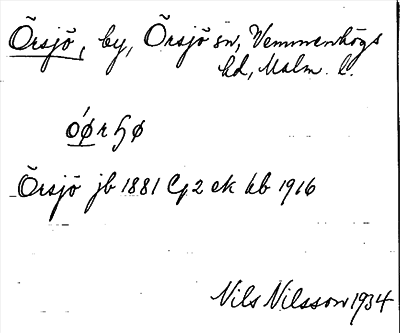 Örsjö, by, Örsjö sn, Vemmenhögs
hd, Malm. l.
Örsjö jb 1881 C, 2 ek kb 1916
Nils Nilsson 1934